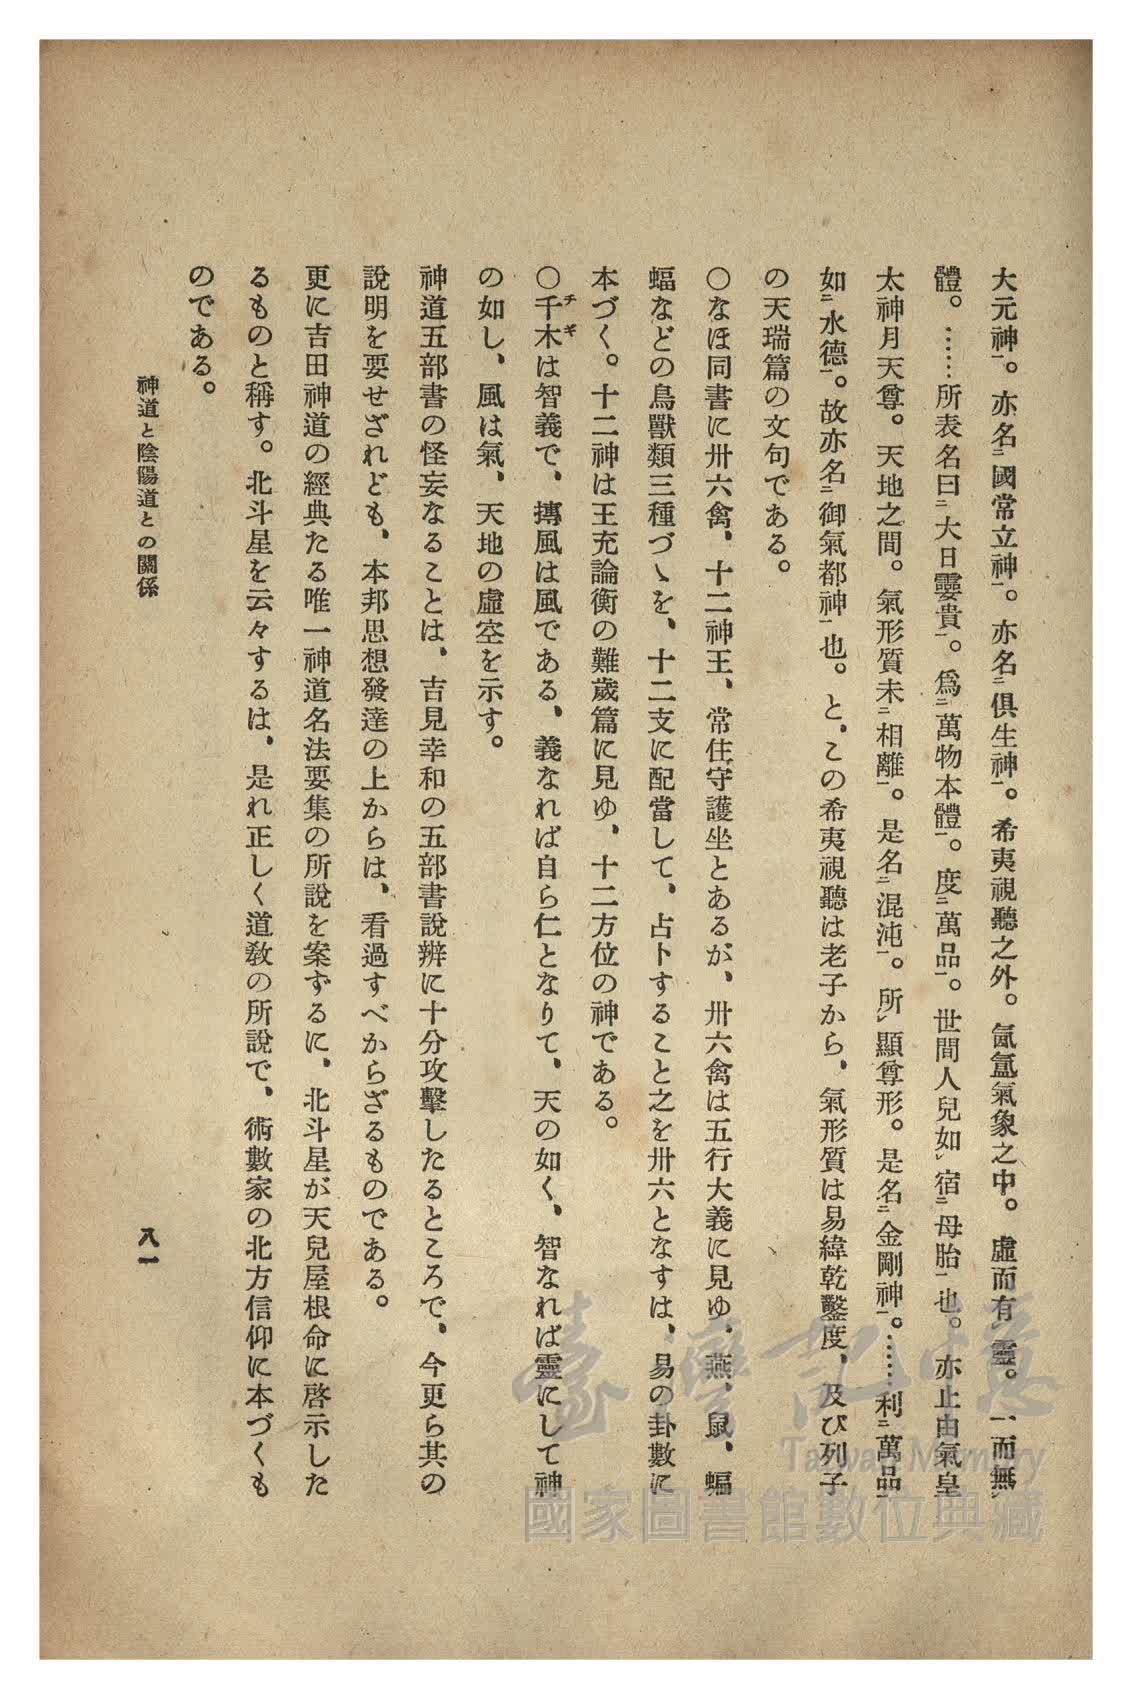 大元神一。亦名二國常立神一。亦名二俱生神一。希夷視聽之外。氤氳氣象之中。虛而有靈。一而無
體。……所表名曰二大日孁貴一。爲二萬物本體一。度二萬品一。世間人兒如レ宿二母胎一也。亦止由氣皇
太神月天尊。天地之間。氣形質未二相離一。是名二混沌一。所レ顯尊形。是名二金剛神一。……利二萬品一
如二水德一。故亦名二御氣都神一也。と、この希夷視聽は老子から、氣形質は易緯乾鑿度、及び列子
の天瑞篇の文句である。
〇なほ同書に卅六禽、十二神王、常住守護坐とあるが、卅六禽は五行大義に見ゆ、燕、鼠、蝠
蝠などの鳥獸類三種づゝを、十二支に配當して、占卜すること之を卅六となすは、易の卦數に
本づく。十二神は王充論衡の難歲篇に見ゆ、十二方位の神である。
〇千木チギは智義で、摶風は風である、義なれば自ら仁となりて、天の如く、智なれば靈にして神
の如し、風は氣、天地の虛空を示す。
神道五部書の怪妄なることは、吉見幸和の五部書說辨に十分攻擊したるところで、今更ら其の
說明を要せざれども、本邦思想發達の上からは、看過すべからざるものである。
更に吉田神道の經典たる唯一神道名法要集の所說を案ずるに、北斗星が天兒屋根命に啓示した
るものと稱す。北斗星を云々するは、是れ正しく道敎の所說で、術數家の北方信仰に本づくも
のである。
神道と陰陽道との關係
八一
臺灣記憶
Taiwan Memory
國家圖書館數位典藏